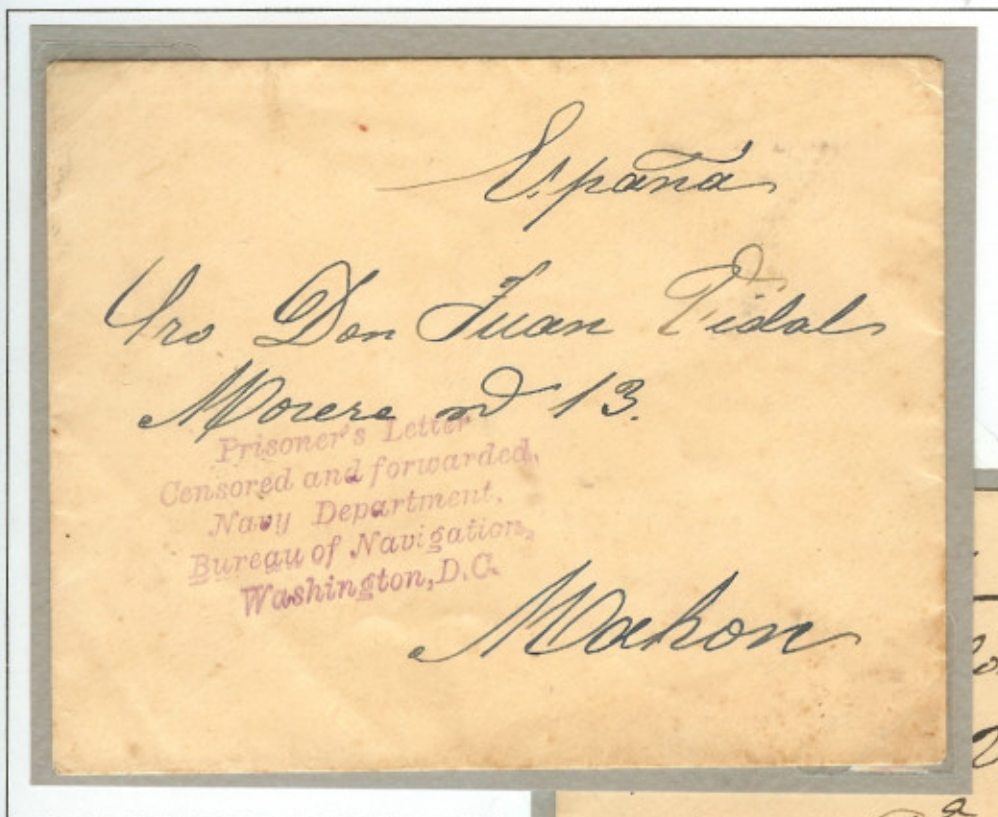 España
Sro Don Juan Vidal
Morere nº 13.
Prisoner's Letter
Censored and forwarded,
Navy Department,
Bureau of Navigation,
Washington, D.C.
Mahon